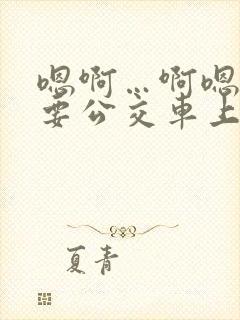 嗯啊…啊嗯
要公交车上
夏青